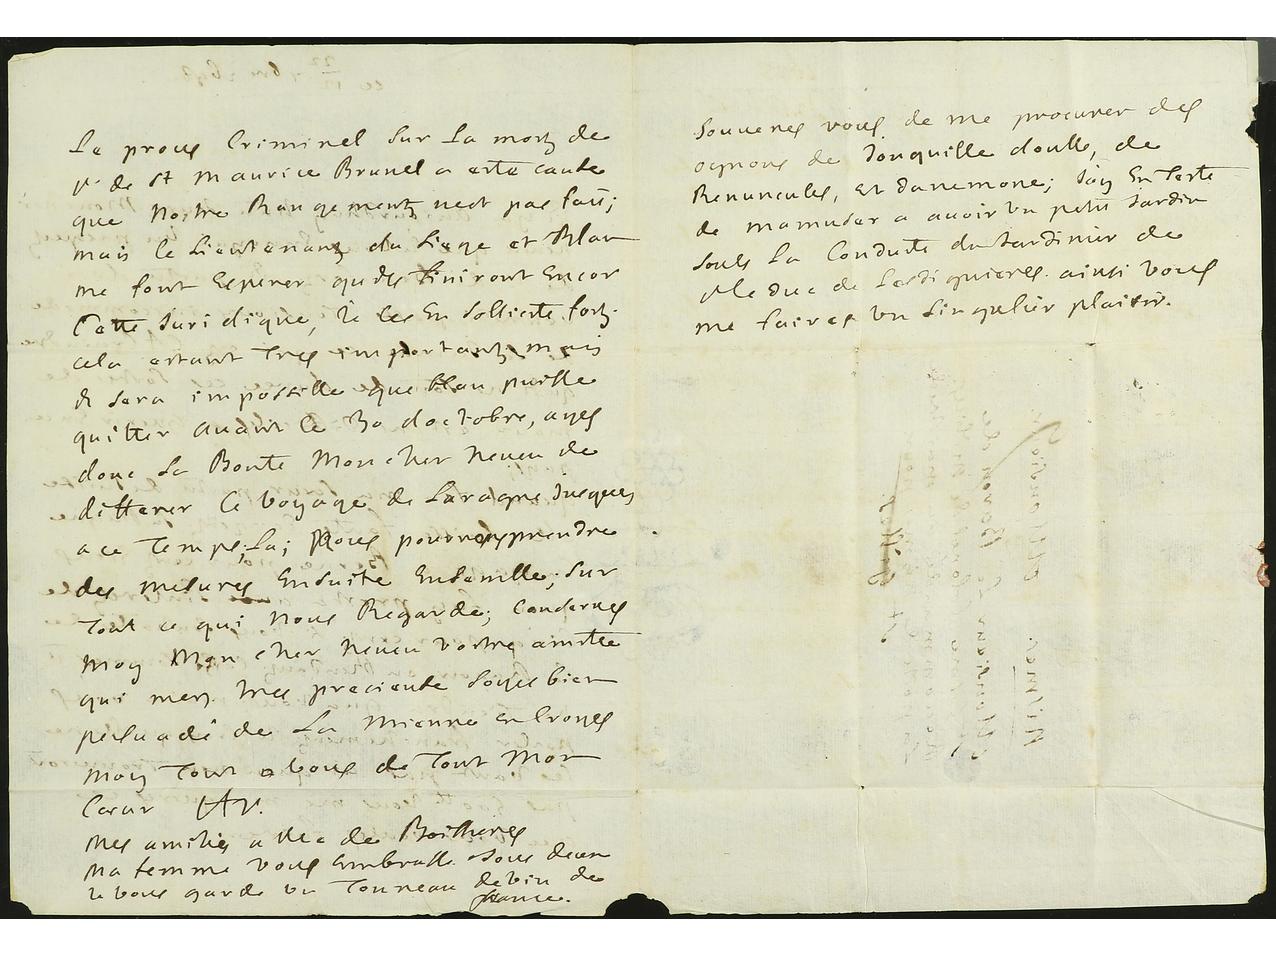 Le proces Criminel sur La mort de
Mr de St Maurice Brunel a este cause
que Nostre Rangement nest pas fait;
mais le Lieutenant du Siege et Blau
me font Esperer quils finiront Encor
Cette Juridique, Je les En sollicite fort
cela estant tres important, mais
Il sera impossible que blau puisse
quitter avant le 30 doctobre, ayes
donc La Bonte Mon cher Neveu de
differer Ce Voyage de Laragne Jusques
a ce Temps La; Nous pourrons prendre
des mesures Ensuite Ensemble, sur
Tout ce qui Nous Regarde; Conserves
Moy Mon cher Neveu Vostre amitie
qui mest tres pretieuse Soyes bien
persuadé de La Mienne en Croyes
Moy Tout a Vous de Tout Mon
Cœur
Mes amities a de
Ma femme Vous Embrasse
Je Vous garde Un Tonneau de vin de
france.
Souvenes vous de me procurer des
ognons de Jonquille double, de
Renuncules, et danemone; Jay En Teste
de mamuser a avoir Un petit Jardin
soubs La Conduite du Jardinier de
Mr Le duc de Lesdiguieres. ainsi Vous
me faires Un singulier plaisir.